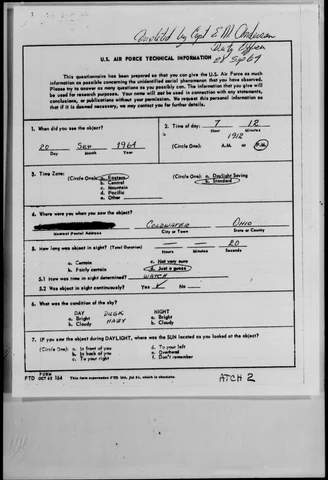 Completed by Capt E M Anderson
Duty Officer
28 Sep 67
U. S. AIR FORCE TECHNICAL INFORMATION
This questionnaire has been prepared so that you can give the U.S. Air Force as much
information as possible concerning the unidentified aerial phenomenon that you have observed.
Please try to answer as many questions as you possibly can. The information that you give will
be used for research purposes. Your name will not be used in connection with any statements,
conclusions, or publications without your permission. We request this personal information so
that if it is deemed necessary, we may contact you for further details.
1. When did you see the object?
20 Sep 1967
Day Month Year
2. Time of day: 7 12
Hour Minutes
1912
(Circle One): A.M. or P.M.
3. Time Zone:
(Circle One): a. Eastern
b. Central
c. Mountain
d. Pacific
e. Other
(Circle One): a. Daylight Saving
b. Standard
4. Where were you when you saw the object?
COLDWATER OHIO
Nearest Postal Address City or Town State or County
5. How long was object in sight? (Total Duration) — — 20
Hours Minutes Seconds
a. Certain c. Not very sure
b. Fairly certain d. Just a guess
5.1 How was time in sight determined? WATCH
5.2 Was object in sight continuously? Yes ✓ No
6. What was the condition of the sky?
DAY DUSK NIGHT
a. Bright a. Bright
b. Cloudy HAZY b. Cloudy
7. IF you saw the object during DAYLIGHT, where was the SUN located as you looked at the object?
(Circle One): a. In front of you d. To your left
b. In back of you e. Overhead
c. To your right f. Don't remember
FORM
FTD OCT 62 164 This form supersedes FTD 164, Jul 61, which is obsolete.
ATCH 2